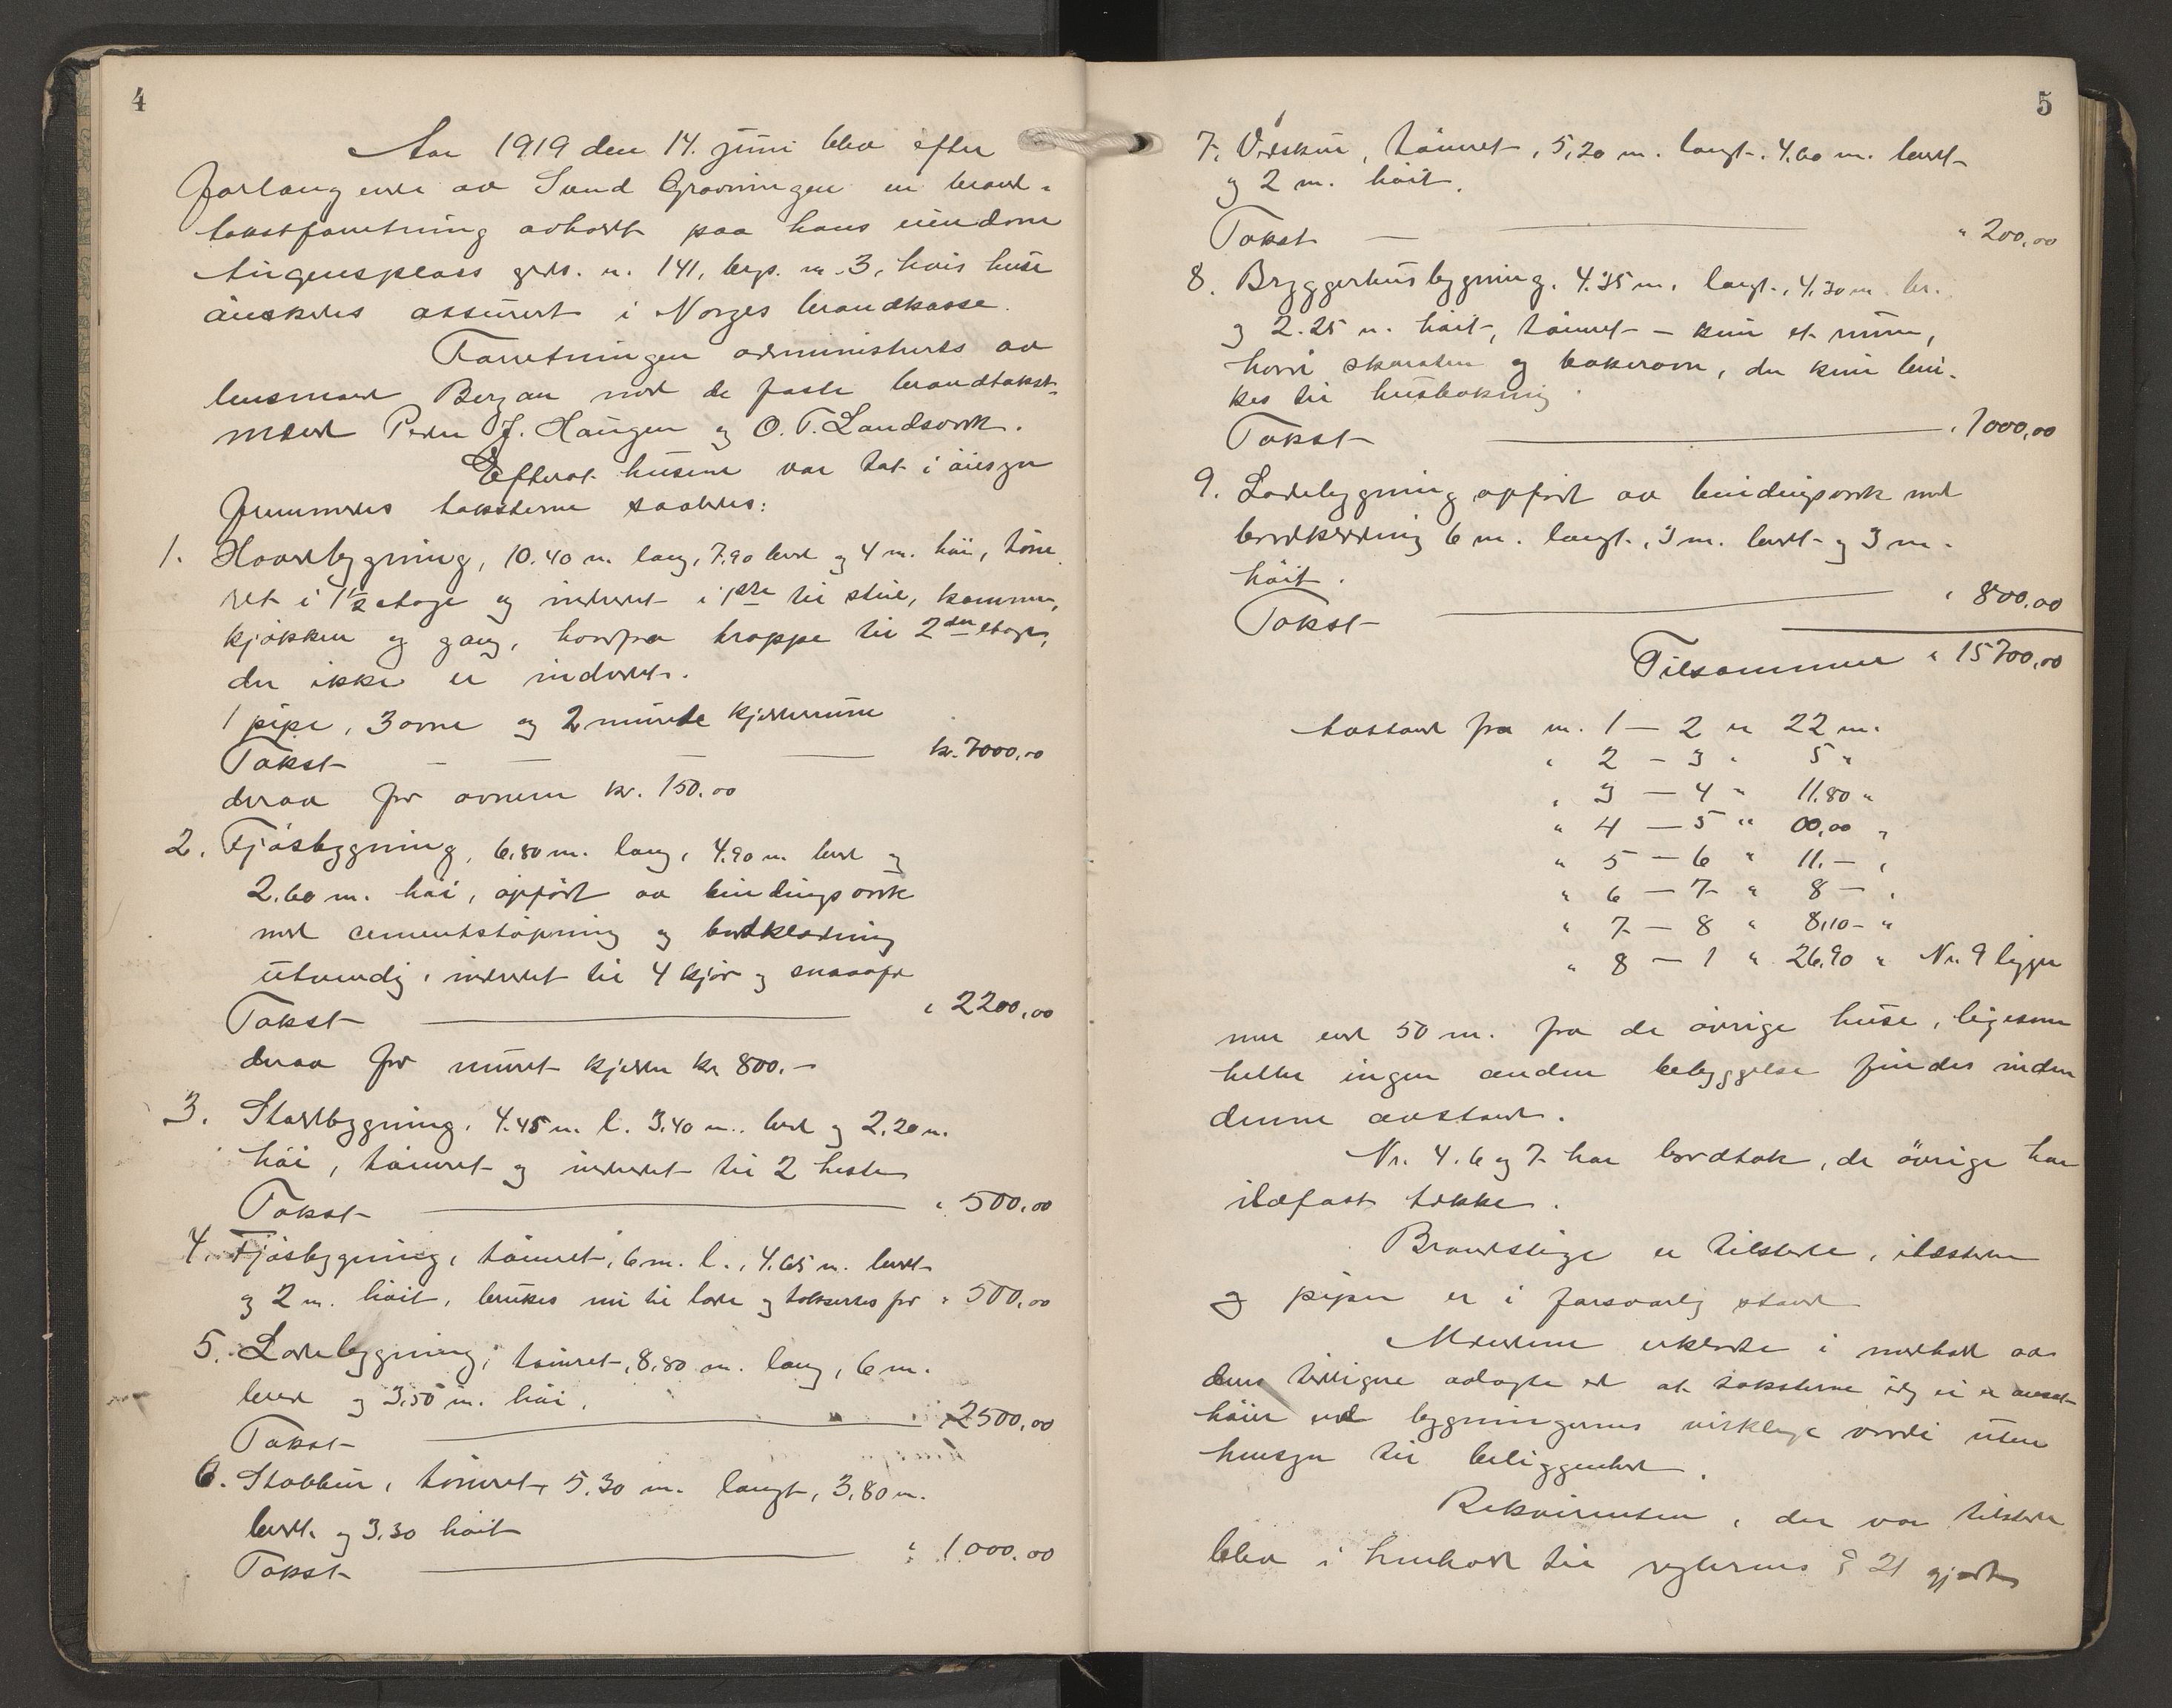 4
Aar 1919 den 14. juni blev efter
forlangende av Svend Gravningen en brand-
takstforretning avholdt paa hans eiendom
Haugensplass grds. n. 141, brgs. nr. 3, hvis huse
ønskedes assurert i Norges brandkasse.
Forretningen administrertes av
lensmand Bergan med de faste brandtakst-
mænd Peder J. Haugen og O. T. Landsverk.
Efterat husene var tat i øiesyn
fremmedes taksterne saaledes:
1. Hovedbygning, 10.40 m. lang, 7.90 bred og 4 m. høi, tøm
ret i 1½ etage og indredet i 1ste til stue, kammer,
kjøkken og gang, hvorfra trappe til 2den etage,
der ikke er indredet.
1 pipe, 3 ovne og 2 murede kjælderrum
Takst — — — kr. 7000,00
derav for ovnene kr. 150.00
2. Fjøsbygning, 6.80 m. lang, 4.90 m bred og
2.60 m. høi, opført av bindingsverk
med cementstøpning og bordklædning
utvendig, indredet til 4 kjør og smaafe
Takst — " 2200,00
derav for muret kjelder kr 800.–
3. Staldbygning, 4.45 m. l. 3.40 m. bred og 2.20 m.
høi, tømret og indredet til 2 heste
Takst — " 500,00
4. Fjøsbygning, tømret, 6 m. l., 4.65 m. bredt
og 2 m. høit, brukes nu til lade og takseres for " 500,00
5. Ladebygning, tømret, 8,80 m. lang, 6 m.
bred og 3.50 m. høi.
Takst — 2500,00
6. Stabbur, tømret, 5.30 m. langt, 3.80 m.
bredt og 3.30 høit
Takst — " 1000.00
5
7. Vedskur, tømret, 5,20 m. langt, 4.60 m. bredt
og 2 m. høit.
Takst — — " 200,00
8. Bryggerhusbygning. 4.35 m. langt, 4.30 m br.
og 2.25 m. høit, tømret – kun et rum,
hvori skorsten og bakerovn, der kun bru-
kes til husbakning
Takst — " 1000,00
9. Ladebygning opført av bindingsverk med
bordklædning 6 m. langt, 3 m. bredt og 3 m.
høit.
Takst — " 800,00
Tilsammen " 15700,00
Avstand fra nr. 1 – 2 er 22 m.
" 2 – 3 " 5 "
" 3 – 4 " 11.80 "
" 4 – 5 " 00,00 "
" 5 – 6 " 11.– "
" 6 – 7 " 8 – "
" 7 – 8 " 8,10 – "
" 8 – 1 " 26,90 " Nr. 9 ligger
mer end 50 m. fra de øvrige huse, ligesom
heller ingen anden bebyggelse findes inden
denne avstand.
Nr. 4. 6 og 7 har bordtak, de øvrige har
ildfast tække.
Brandstige er tilstede, ildsteder
og piper er i forsvarlig stand
Mændene erklærte i medhold av
den tidligere avlagte ed at taksterne ei er ansat
høier end bygningernes virkelige værdi uten
hensyn til beliggenhet.
Rekvirenten, der var tilstede
blev i henhold til reglernes § 21 gjort